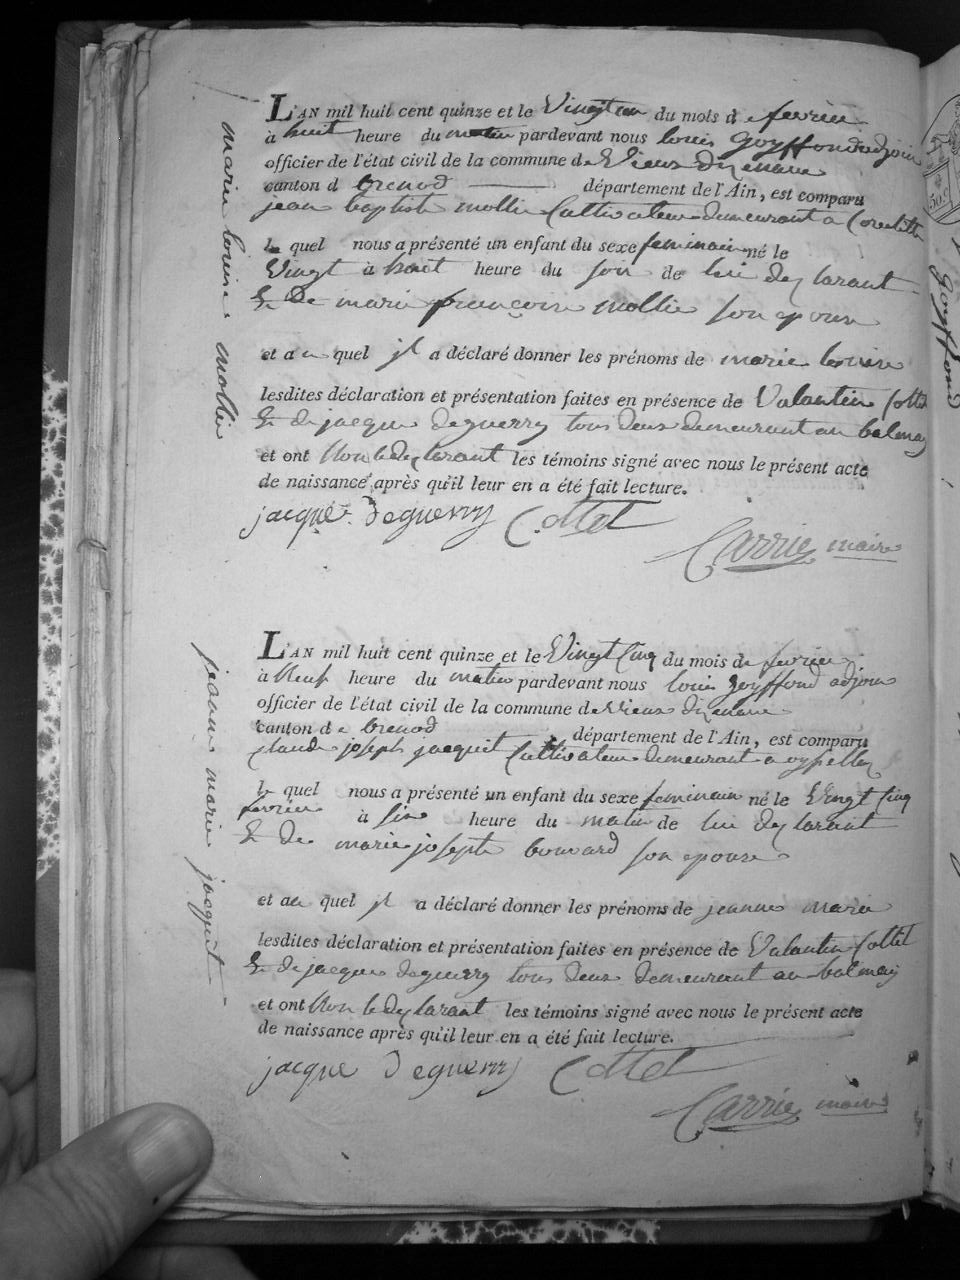 L'AN mil huit cent quinze et le Vingt un du mois de fevrier
à huit heure du matin pardevant nous louis goyffond adjoin
officier de l'état civil de la commune de Vieux dizenave
canton d Brenod département de l'Ain, est comparu
jean baptiste mollie Cultivateur demeurant a Corcelette
le quel nous a présenté un enfant du sexe feminain né le
Vingt à huit heure du soir de lui declarant
& De marie françoise mollie son epouse
et a u quel jl a déclaré donner les prénoms de marie louise
lesdites déclaration et présentation faites en présence de Valantin Cottet
& de jacque deguerry tous deux demeurant au balmay
et ont Non le declarant les témoins signé avec nous le présent acte
de naissance après qu'il leur en a été fait lecture.
jacque Deguerry Cottet
Carrier maire
marie louise mollie
L'AN mil huit cent quinze et le Vingt Cinq du mois de fevrier
à Neuf heure du matin pardevant nous louis goyffond adjoin
officier de l'état civil de la commune de Vieux dizenave
canton de Brenod département de l'Ain, est comparu
claude joseph jacquit Cultivateur demeurant a
le quel nous a présenté un enfant du sexe feminain né le Vingt Cinq
fevrier à six heure du matin de lui declarant
& De marie josephte bouvard son epouse
et au quel jl a déclaré donner les prénoms de jeanne marie
lesdites déclaration et présentation faites en présence de Valantin Cottet
& de jacque deguerry tous deux demeurant au balmay
et ont Non le declarant les témoins signé avec nous le présent acte
de naissance après qu'il leur en a été fait lecture.
jacque Deguerry Cottet
Carrier maire
jeanne marie jacquit
goyffond